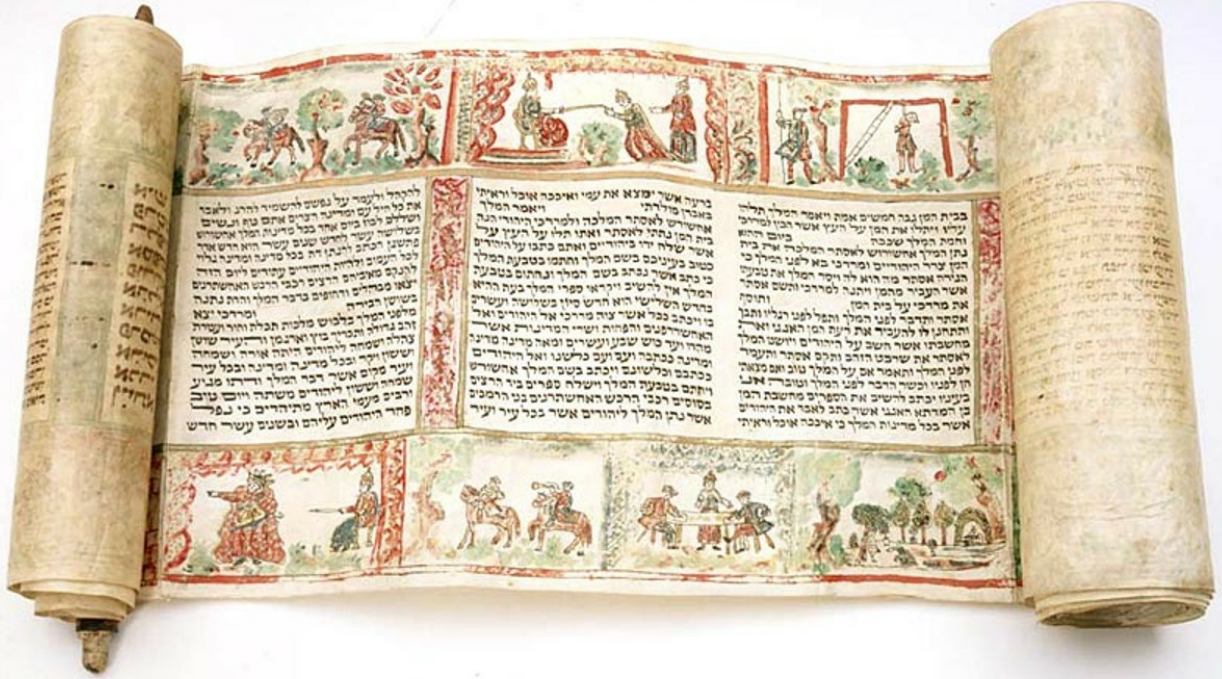 בבית המן גבה חמשים אמה ויאמר המלך תלהו
עליו ויתלו את המן על העץ אשר הכין למרדכי
וחמת המלך שככה ביום ההוא
נתן המלך אחשורוש לאסתר המלכה את בית
המן צרר היהודיים ומרדכי בא לפני המלך כי
הגידה אסתר מה הוא לה ויסר המלך את טבעתו
אשר העביר מהמן ויתנה למרדכי ותשם אסתר
את מרדכי על בית המן ותוסף
אסתר ותדבר לפני המלך ותפל לפני רגליו ותבך
ותתחנן לו להעביר את רעת המן האגגי ואת
מחשבתו אשר חשב על היהודיים ויושט המלך
לאסתר את שרבט הזהב ותקם אסתר ותעמד
לפני המלך ותאמר אם על המלך טוב ואם מצאתי
חן לפניו וכשר הדבר לפני המלך וטובה אני
בעיניו יכתב להשיב את הספרים מחשבת המן
בן המדתא האגגי אשר כתב לאבד את היהודים
אשר בכל מדינות המלך כי איככה אוכל וראיתי
ברעה אשר ימצא את עמי ואיככה אוכל וראיתי
באבדן מולדתי ויאמר המלך
אחשורש לאסתר המלכה ולמרדכי היהודי הנה
בית המן נתתי לאסתר ואתו תלו על העץ על
אשר שלח ידו ביהודיים ואתם כתבו על היהודים
כטוב בעיניכם בשם המלך וחתמו בטבעת המלך
כי כתב אשר נכתב בשם המלך ונחתום בטבעת
המלך אין להשיב ויקראו ספרי המלך בעת ההיא
בחדש השלישי הוא חדש סיון בשלושה ועשרים
בו ויכתב ככל אשר צוה מרדכי אל היהודים ואל
האחשדרפנים והפחות ושרי המדינות אשר
מהדו ועד כוש שבע ועשרים ומאה מדינה מדינה
ומדינה ככתבה ועם ועם כלשנו ואל היהודים
ככתבם וכלשונם ויכתב בשם המלך אחשורש
ויחתם בטבעת המלך וישלח ספרים ביד הרצים
בסוסים רכבי הרכש האחשתרנים בני הרמכים
אשר נתן המלך ליהודים אשר בכל עיר ועיר
להקהל ולעמד על נפשם להשמיד להרג ולאבד
את כל חיל עם ומדינה הצרים אתם טף ונשים
ושללם לבוז ביום אחד בכל מדינות המלך אחשורוש
בשלושה עשר לחדש שנים עשר הוא חדש אדר
פתשגן הכתב להנתן דת בכל מדינה ומדינה גלוי
לכל העמים ולהיות היהודיים עתידים ליום הזה
להנקם מאיביהם הרצים רכבי הרכש האחשתרנים
יצאו מבהלים ודחופים בדבר המלך והדת נתנה
בשושן הבירה ומרדכי יצא
מלפני המלך בלבוש מלכות תכלת וחור ועטרת
זהב גדולה ותכריך בוץ וארגמן והעיר שושן
צהלה ושמחה ליהודים היתה אורה ושמחה
וששון ויקר ובכל מדינה ומדינה ובכל עיר
ועיר מקום אשר דבר המלך ודתו מגיע
שמחה וששון ליהודים משתה ויום טוב
ורבים מעמי הארץ מתיהדים כי נפל
פחד היהודים עליהם ובשנים עשר חדש